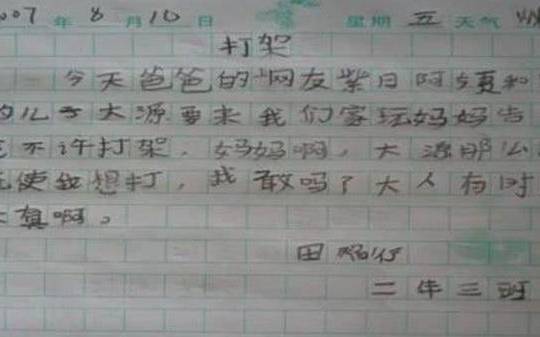 007年8月10日 星期五天气
打架
今天爸爸的网友紫日阿姨和
儿子大源要来我们家玩妈妈告
不许打架,妈妈啊,大源那么
使我想打,我敢吗?大人有时
真啊。
田
二年三班